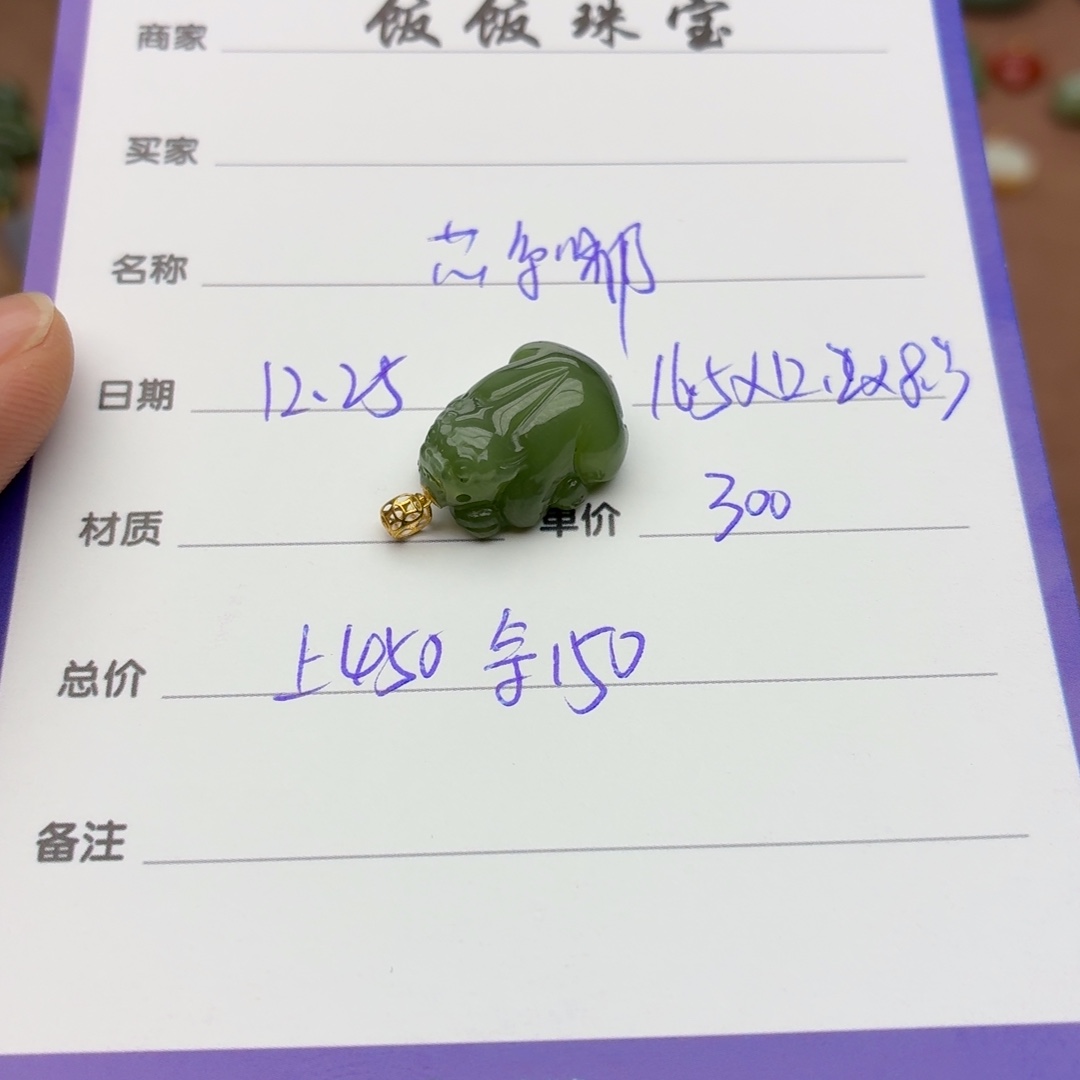 商家 饭饭珠宝
买家
名称 芯尔哪
日期 12.25 16.5x12.2x8.3
材质 单价 300
总价 上450 子150
备注